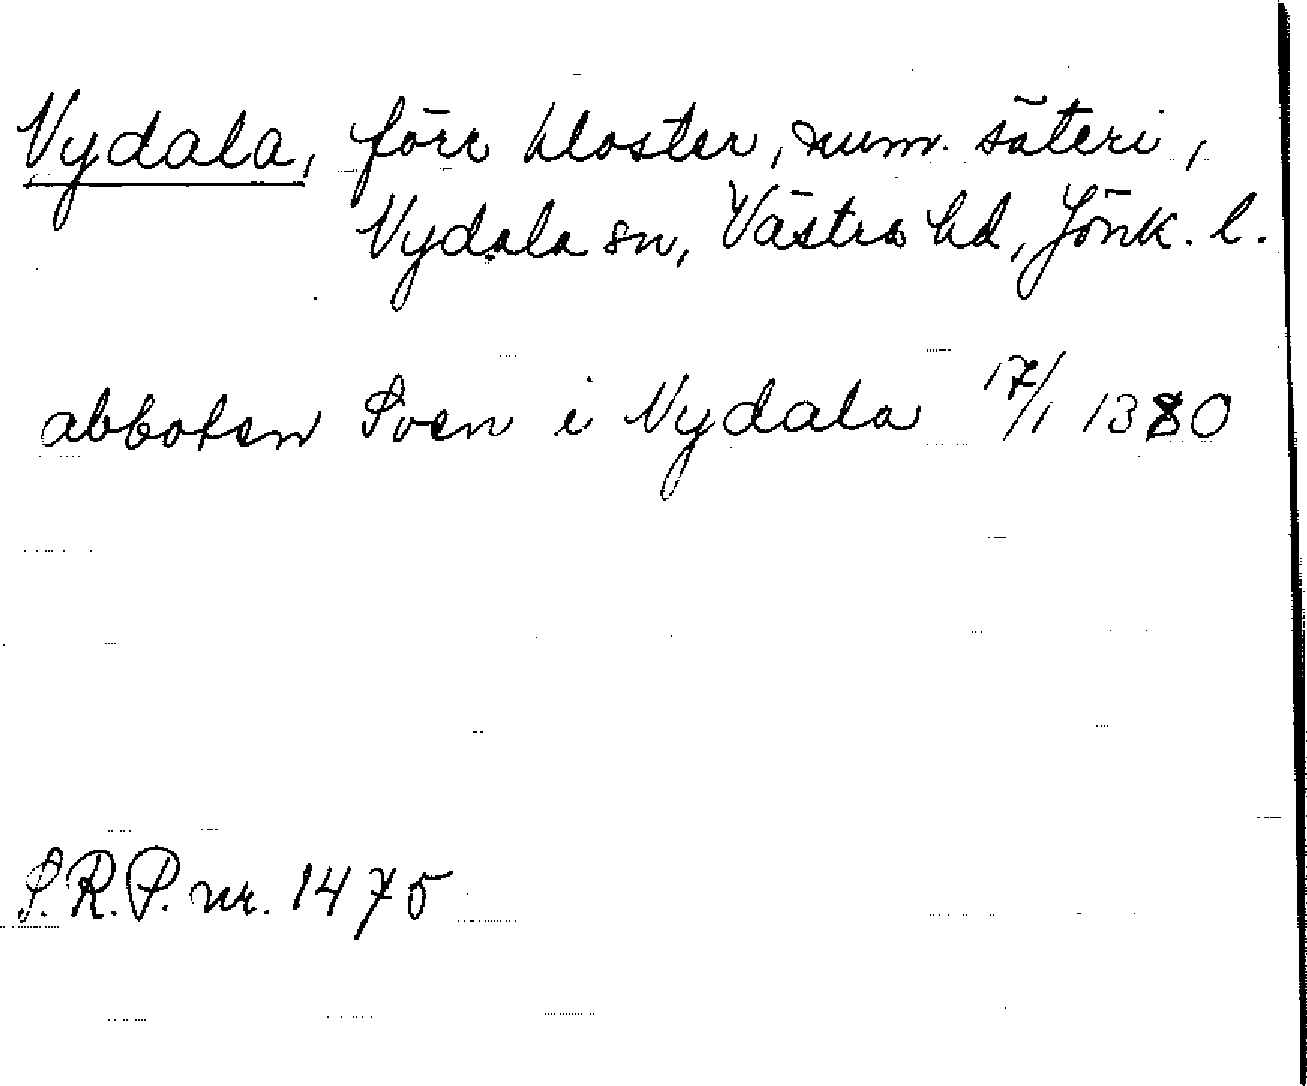 Nydala, förr kloster, num. säteri,
Nydala sn, Västra hd, Jönk. l.
abboten Sven i Nydala 17/1 1380
S.R.P. nr. 1475